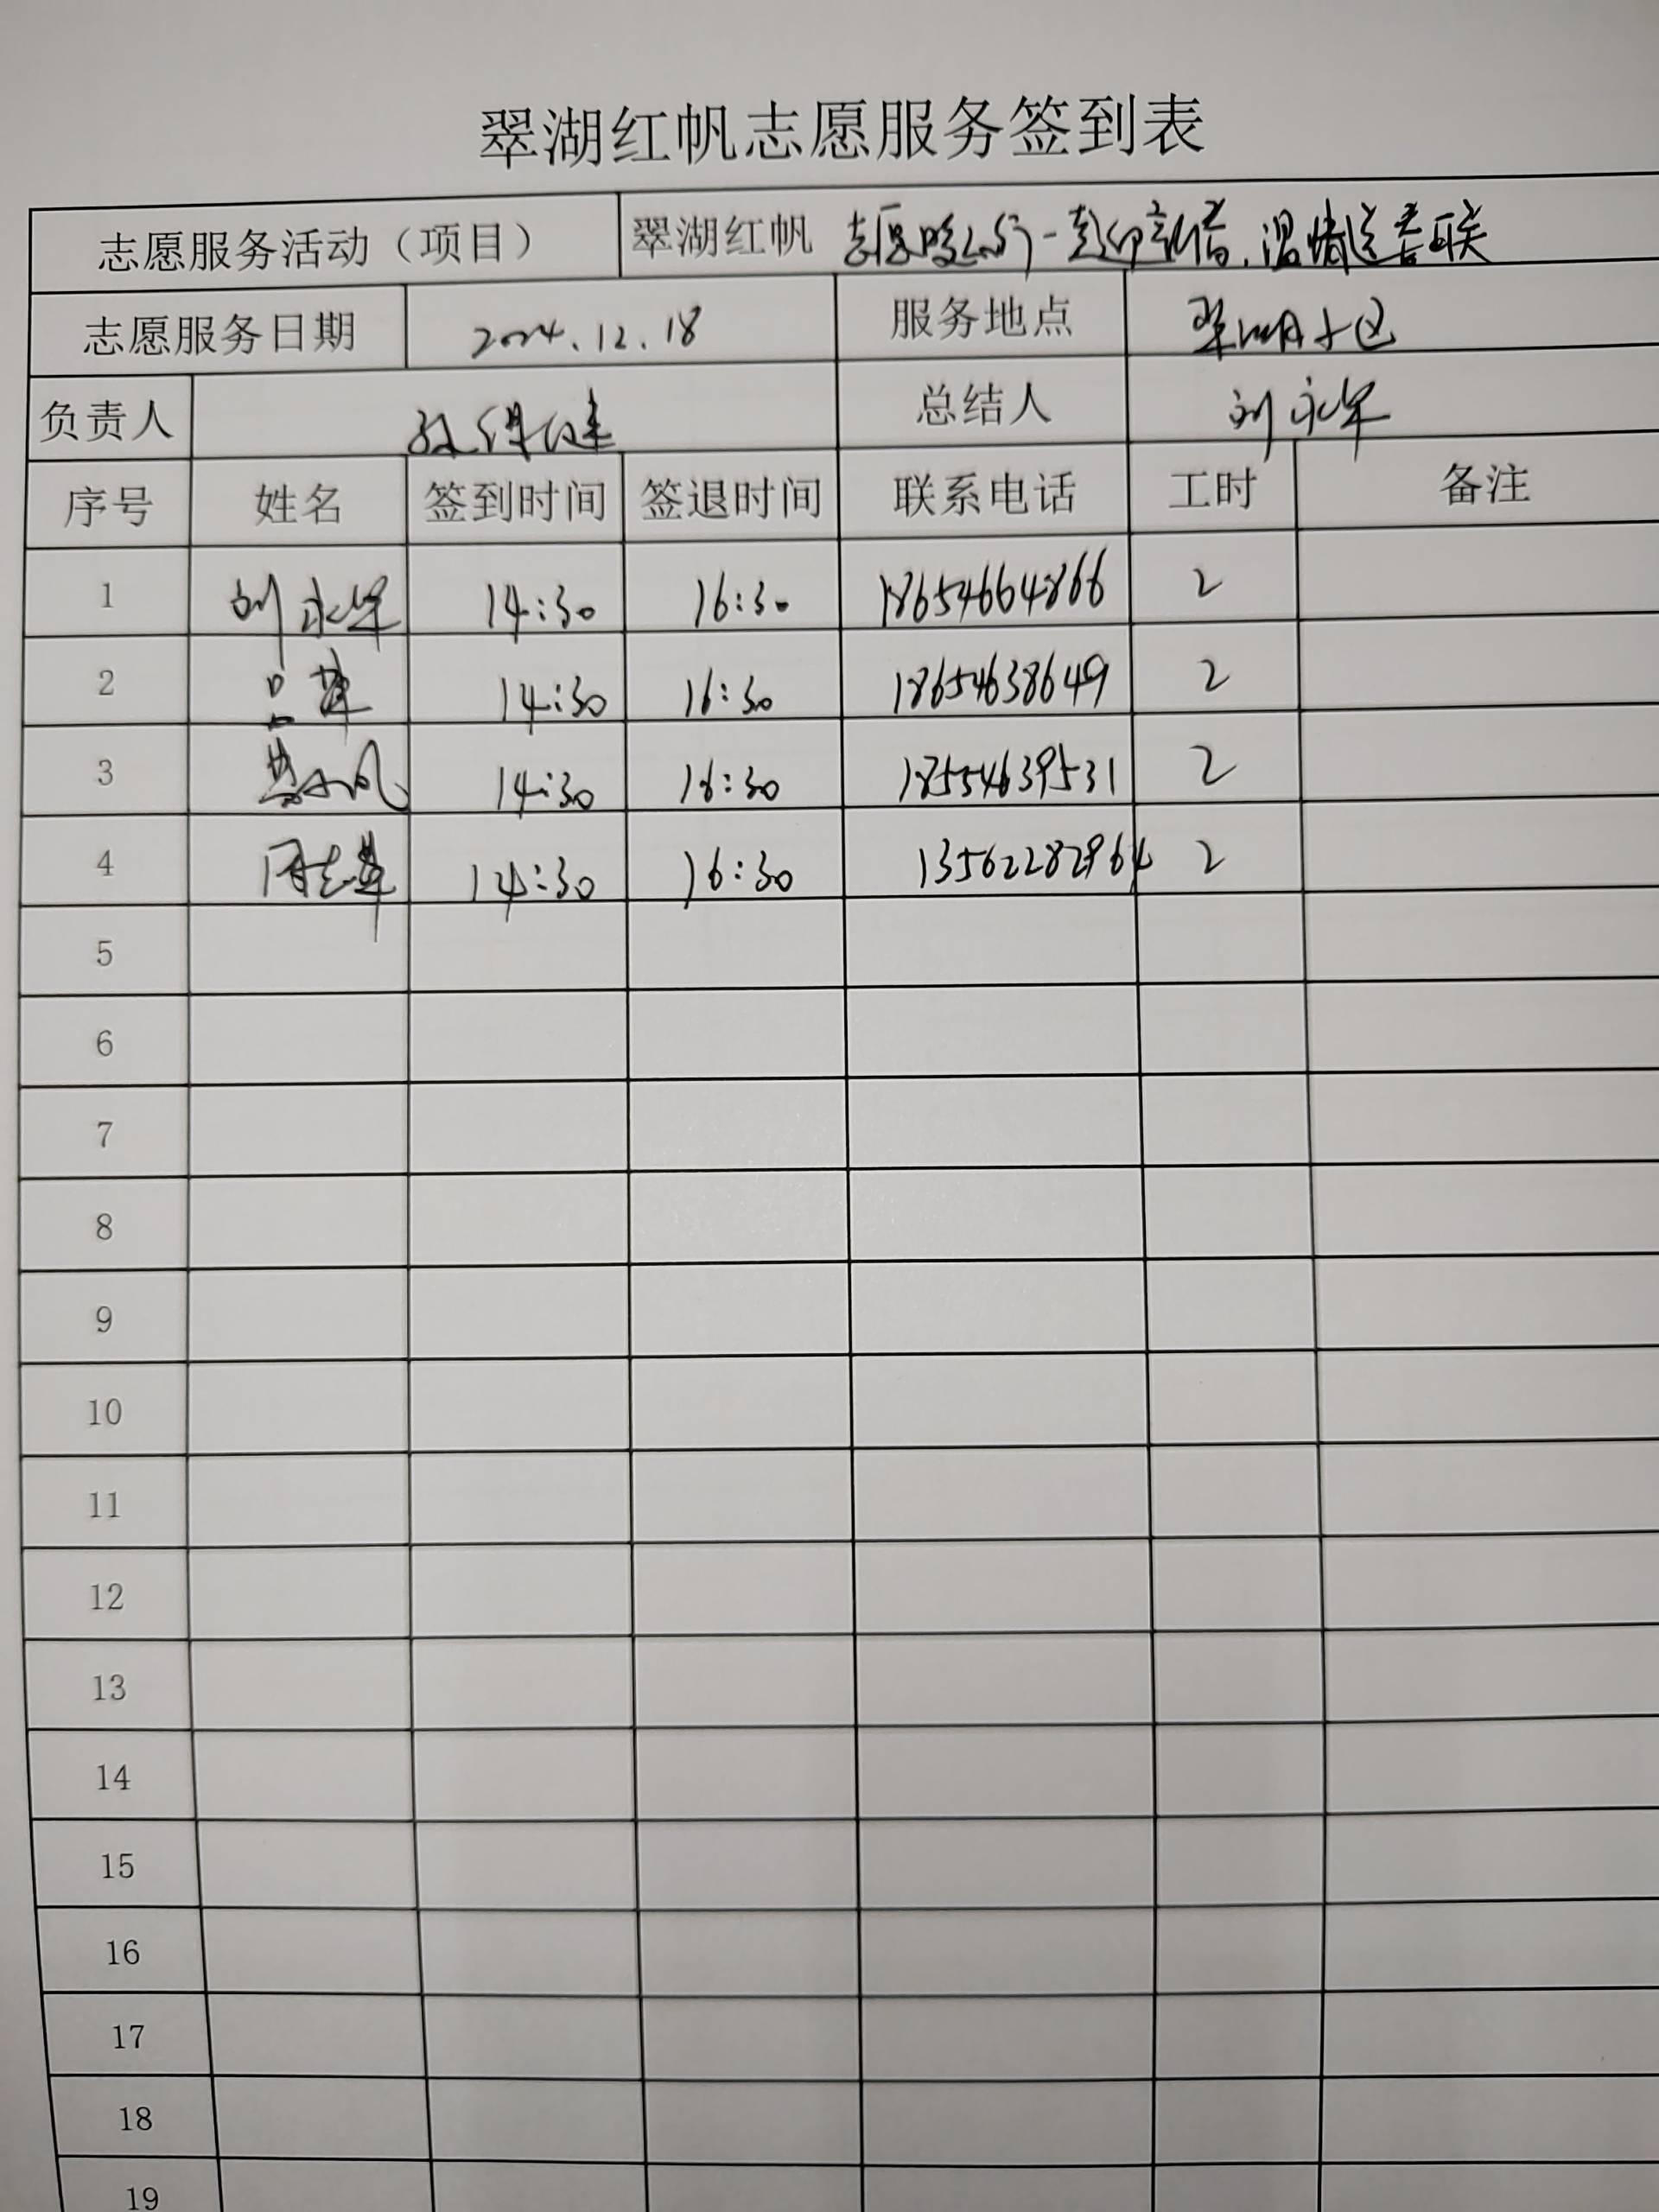 翠湖红帆志愿服务签到表
志愿服务活动（项目） 翠湖红帆 志愿暖心行-喜迎新春.温情送春联
志愿服务日期 2024.12.18 服务地点 翠湖小区
负责人 总结人 刘永军
序号 姓名 签到时间 签退时间 联系电话 工时 备注
1 刘永军 14:30 16:30 18654664866 2
2 14:30 16:30 18654638649 2
3 14:30 16:30 18554639531 2
4 14:30 16:30 13562282964 2
5
6
7
8
9
10
11
12
13
14
15
16
17
18
19